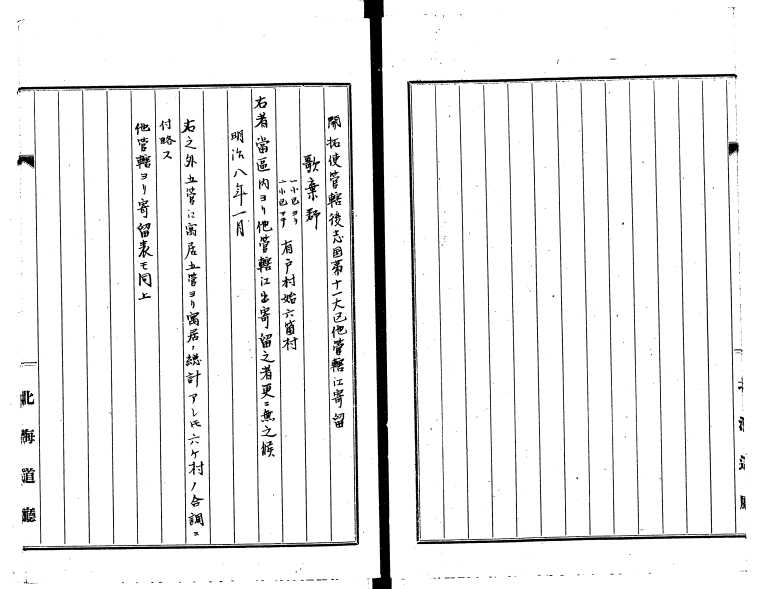 開拓使管轄後志国第十一大区他管轄江寄留
歌棄郡
一小区ヨリ
一小区マテ
有戸村始六箇村
右者當區内ヨリ他管轄江出寄留之者更ニ無之候
明治八年一月
右之外五管江寓居五管ヨリ寓居ノ総計アレ𪜈六ケ村ノ合調ニ
付略ス
他管轄ヨリ寄留表モ同上
北海道廳